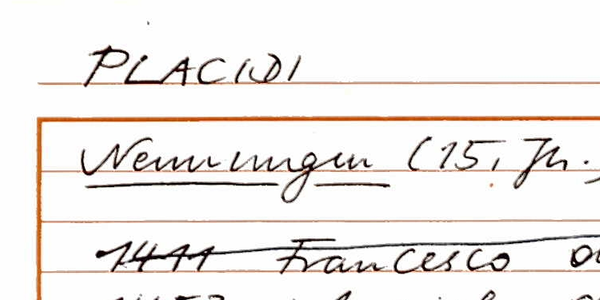 PLACIDI
Nennungen (15. Jh.)
1411 Francesco